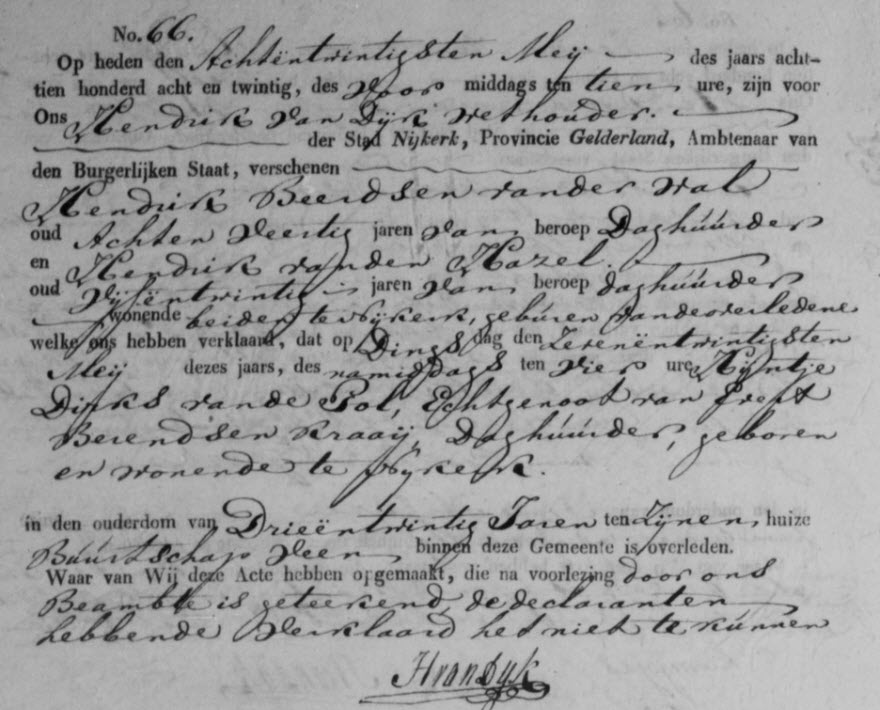 No. 66.
Op heden den Achtëntwintigsten Meij des jaars acht-
tien honderd acht en twintig, des Voor middags ten tien ure, zijn voor
Ons Hendrik van Dijk Wethouder.
der Stad Nijkerk, Provincie Gelderland, Ambtenaar van
den Burgerlijken Staat, verschenen
Hendrik Beerdsen vander Wal
oud Achten Veertig jaren van beroep Daghúúrder
en Hendrik vanden Hazel.
oud Vijfëntwintig jaren van beroep daghúúrder
wonende beiden te Nijkerk, gebúren vandeoverledene
welke ons hebben verklaard, dat op Dings dag den Zevenëntwintigsten
Meij dezes jaars, des namiddags ten vier ure Hijntje
Dirks vande Pol, Echtgenoot van Evert
Berendsen Kraaij, Daghúúrder, geboren
en wonende te Nijkerk.
in den ouderdom van Drieëntwintig Jaren ten Zijnen huize
Búúrtschap Veen binnen deze Gemeente is overleden.
Waar van Wij deze Acte hebben opgemaakt, die na voorlezing door ons
Beambte is geteekend, de declaranten
hebbende Verklaard het niet te kúnnen
HvanDijk